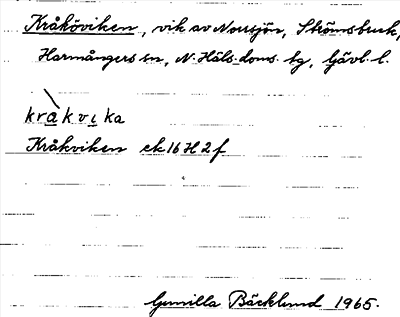 Kråköviken, vik av Norrsjön, Strömsbruk,
Harmångers sn, N. Häls. doms. tg, Gävl. l.
kràkvika
Kråkviken ek 16 H 2 f
Gunilla Bäcklund 1965.